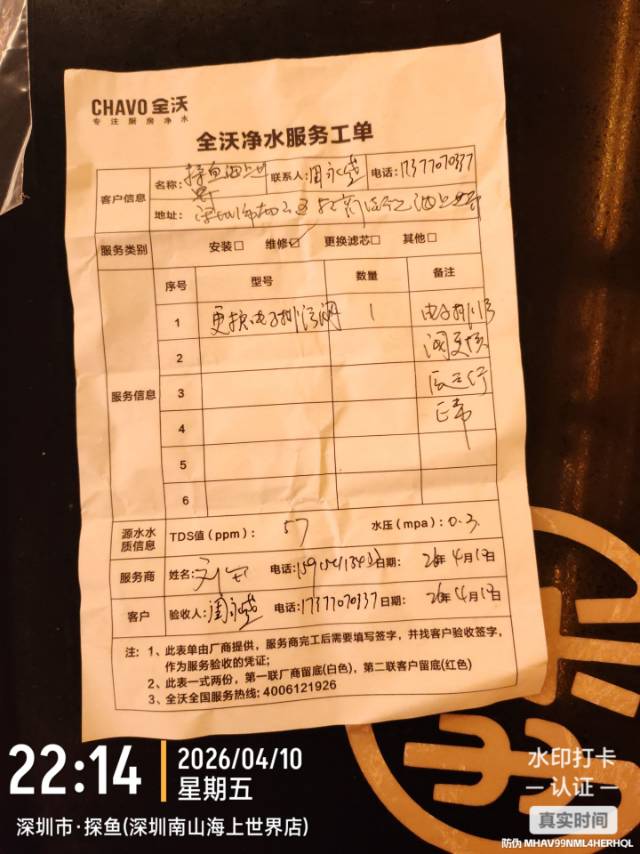 CHAVO 全沃
专注厨房净水
全沃净水服务工单
客户信息 名称: 探鱼海上世界 联系人: 周永盛 电话: 17377070337
地址: 深圳市南山区 海上世界
服务类别 安装□ 维修☑ 更换滤芯□ 其他□
服务信息 序号 型号 数量 备注
1 更换电子排污阀 1 电子排污
2 阀更换
3 后运行
4 正常
5
6
源水水质信息 TDS值(ppm): 57 水压(mpa): 0.3
服务商 姓名: 电话: 日期: 26年4月10日
客户 验收人: 周永盛 电话: 17377070337 日期: 26年4月10日
注: 1、此表单由厂商提供,服务商完工后需要填写签字,并找客户验收签字,
作为服务验收的凭证;
2、此表一式两份,第一联厂商留底(白色),第二联客户留底(红色)
3、全沃全国服务热线: 4006121926
22:14
2026/04/10
星期五
深圳市·探鱼(深圳南山海上世界店)
水印打卡
认证
真实时间
防伪 MHAV99NML4HERHQL